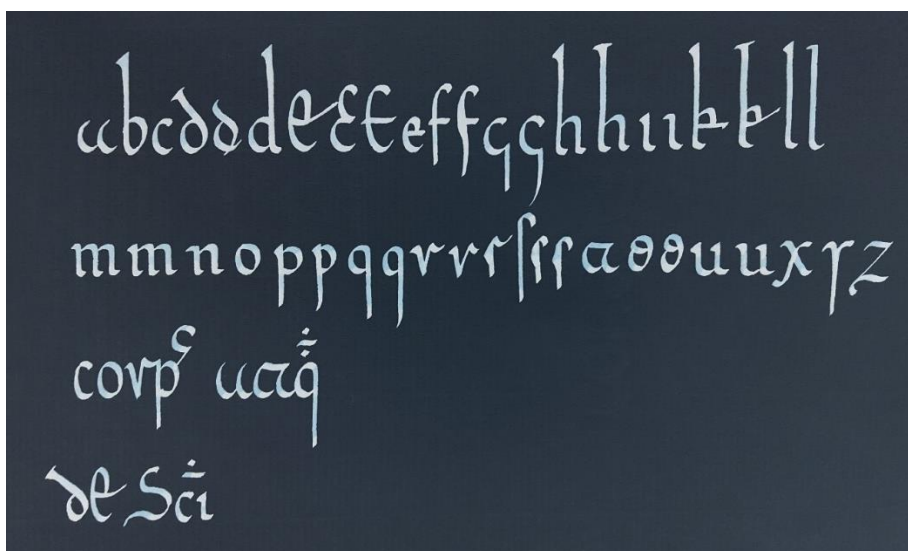 abcdddeeeeffgghhiikkll
mmnoppqqrrsſsstttuuxyz
corpˢ atq̄̇
de Sc̄̇i